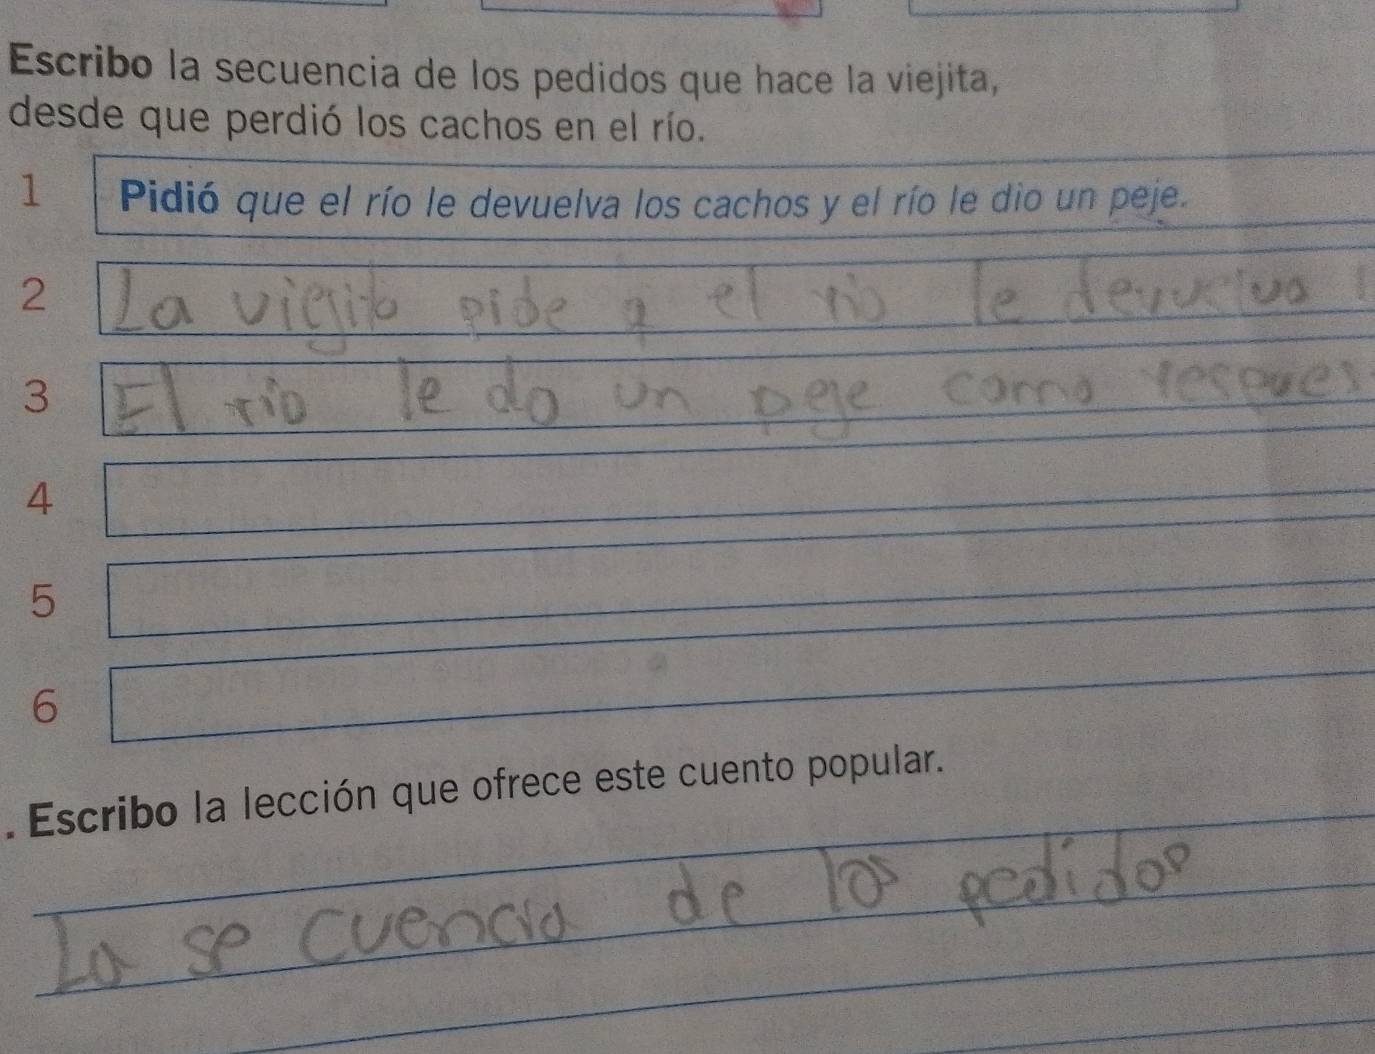 Escribo la secuencia de los pedidos que hace la viejita,
desde que perdió los cachos en el río.
1 Pidió que el río le devuelva los cachos y el río le dio un peje.
2 La viejita pide q el rio le devuelva
3 El rio le da un peje como respues
4
5
6
. Escribo la lección que ofrece este cuento popular.
La se cuencia de los pedidos